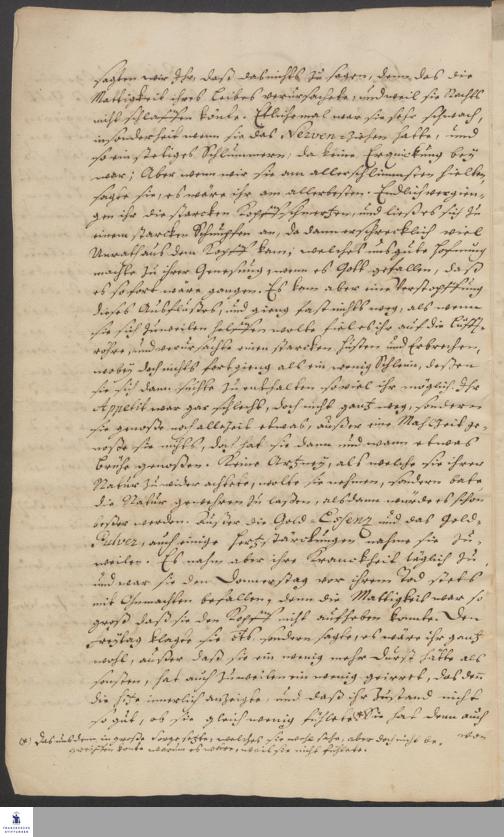 sagten wir Ihr, daß das nichts zu sagen, denn das die
Mattigkeit ihres Leibes verursachete, und weil sie Nachts
nicht schlaffen könte. Etlichemal war sie sehr schwach,
insonderheit wenn sie das Nerven-ziehen hatte, und
so ein stetiges Schlummern, da keine Erquickung bey
war; Aber wenn wir sie am allerschlimmsten hielten,
sagte sie, es wäre ihr am allerbesten. Endlich vergin-
gen ihr die starcken Kopffschmertzen, und ließ es sich zu
einem starcken Schnupfen an, da dann erschrecklich viel
Unrath aus dem Kopff kam, welches uns gute Hofnung
machte zu ihrer Genesung, wenn es Gott gefallen, daß
es so fort wäre gangen. Es kam aber eine Verstopffung
dieses Ausflußes, und gieng fast nichts weg, als wenn
sie sich zuweilen wolte fiel es ihr auf die Lufft-
röhre, und verursachte einen starcken Husten und Erbrechen,
wobey doch nichts fortgieng als ein wenig Schleim, deßen
sie sich dann suchte zu enthalten so viel ihr möglich. Ihr
Appetit war gar schlecht, doch nicht gantz weg, sondern
sie genoße noch allezeit etwas, außer eine Mahlzeit ge-
noße sie nichts, doch hat sie dann und wann etwas
Brühe genoßen. Keine Artzney, als welche sie ihrer
Natur zuwider achtete, wolte sie nehmen, sondern bate
die Natur gewehren zu laßen, alsdann würde es schon
beßer werden. Außer die Gold-Essenz und das Gold-
Pulver, auch einige Hertz-stärckungen nahme sie zu-
weilen. Es nahm aber ihre Kranckheit täglich zu,
und war sie den Donnerstag vor ihrem Tod stets
mit Ohnmachten befallen, denn die Mattigkeit war so
groß daß sie den Kopff nicht aufheben konte. Den
Freytag klagte sie nichts, sondern sagte, es wäre ihr gantz
wohl, außer daß sie ein wenig mehr Durst hätte als
sonsten, hat auch zuweilen ein wenig geirret, das denn
die Hitze innerlich anzeigte, und daß ihr Zustand nicht
so gut, ob sie gleich wenig fühlete (*) Sie hat denn auch
von
(*) Das uns denn in große Sorge setzte, welches sie wohl sahe, aber doch nicht be-
greiffen konte warum es wäre, weil sie nichts fühlete.
FRANCKESCHE
STIFTUNGEN